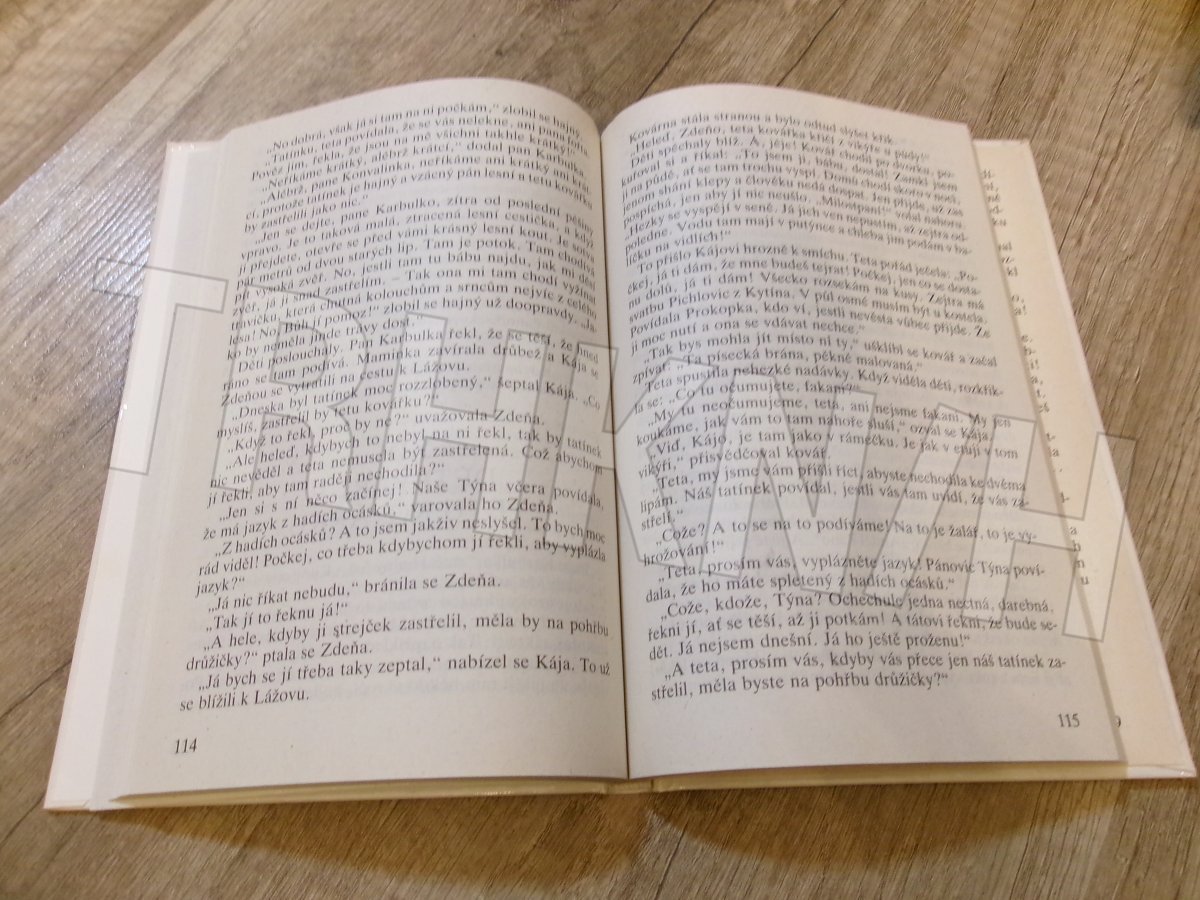 „No dobrá, však já si tam na ni počkám,“ zlobil se hajný.
„Tatínku, teta povídala, že se vás nelekne, ani pana fořta.
Pověz jim, řekla, že jsou na mě všichni takhle krátký.“
„Neříkáme krátký, alébrž krátcí,“ dodal pan Karbulka.
„Alébrž, pane Konvalinka, neříkáme ani krátký ani krát-
cí, protože tatínek je hajný a vzácný pán lesní a tetu kovářku
by zastřelili jako nic.“
„Jen se dejte, pane Karbulko, zítra od poslední pěšiny
vpravo. Je to taková malá, ztracená lesní cestička, a když
ji přejdete, otevře se před vámi krásný lesní kout. Je sotva
pár metrů od dvou starých lip. Tam je potok. Tam chodívá
pít vysoká zvěř. No, jestli tam tu bábu najdu, jak mi děsí
zvěř, já ji snad zastřelím. – Tak ona mi tam chodí vyžínat
travičku, která chutná kolouchům a srncům nejvíc z celého
lesa! No, Bůh jí pomoz!“ zlobil se hajný už doopravdy. „Ja-
ko by neměla jinde trávy dost.“
Děti poslouchaly. Pan Karbulka řekl, že se těší, že hned
ráno se tam podívá. Maminka zavírala drůbež a Kája se
Zdeňou se vytratili na cestu k Lážovu.
„Dneska byl tatínek moc rozzlobený,“ šeptal Kája. „Co
myslíš, zastřelil by tetu kovářku?“
„Když to řekl, proč by ne?“ uvažovala Zdeňa.
„Ale heleď, kdybych to nebyl na ni řekl, tak by tatínek
nic nevěděl a teta nemusela být zastřelená. Což abychom
jí řekli, aby tam raději nechodila?“
„Jen si s ní něco začínej! Naše Týna včera povídala,
že má jazyk z hadích ocásků,“ varovala ho Zdeňa.
„Z hadích ocásků? A to jsem jakživ neslyšel. To bych moc
rád viděl! Počkej, co třeba kdybychom jí řekli, aby vyplázla
jazyk?“
„Já nic říkat nebudu,“ bránila se Zdeňa.
„Tak jí to řeknu já!“
„A hele, kdyby ji strejček zastřelil, měla by na pohřbu
družičky?“ ptala se Zdeňa.
„Já bych se jí třeba taky zeptal,“ nabízel se Kája. To už
se blížili k Lážovu.
114
Kovárna stála stranou a bylo odtud slyšet křik.
„Heleď, Zdeňo, teta kovářka křičí z vikýře u půdy!“
Děti spěchaly blíž. A, jéje! Kovář chodil po dvorku, po-
kuřoval si a říkal: „To jsem ji, bábu, dostal! Zamkl jsem
ji na půdě, ať se tam trochu vyspí. Domů chodí skoro v noci,
jenom shání klepy a člověku nedá dospat. Jen přijde, už zas
pospíchá, jen aby jí nic neušlo. „Milostpaní!“ volal nahoru.
„Hezky se vyspějí v seně. Já jich ven nepustím, až zejtra od-
poledne. Vodu tam mají v putýnce a chleba jim podám s ba-
ličku na vidlích!“
To přišlo Kájovi hrozně k smíchu. Teta pořád ječela: „Po-
čkej, já ti dám, že mne budeš tejrat! Počkej, jen co se dosta-
nu dolů, já ti dám! Všecko rozsekám na kusy. Zejtra má
svatbu Pichlovic z Kytína. V půl osmé musím být u kostela.
Povídala Prokopka, kdo ví, jestli nevěsta vůbec přijde. Že
ji moc nutí a ona se vdávat nechce.“
„Tak bys mohla jít místo ní ty,“ ušklíbl se kovář a začal
zpívat: „Ta písecká brána, pěkně malovaná.“
Teta spustila nehezké nadávky. Když viděla děti, rozkřik-
la se: „Co tu očumujete, fakani?“
„My tu neočumujeme, teta, ani nejsme fakani. My jen
koukáme, jak vám to tam nahoře sluší,“ ozval se Kája.
„Viď, Kájo, je tam jako v rámečku. Je jak v efuji v tom
vikýři,“ přisvědčoval kovář.
„Teta, my jsme vám přišli říct, abyste nechodila ke dvěma
lipám. Náš tatínek povídal, jestli vás tam uvidí, že vás za-
střelí.“
„Cože? A to se na to podíváme! Na to je žalář, to je vy-
hrožování!“
„Teta, prosím vás, vyplázněte jazyk! Pánovic Týna poví-
dala, že ho máte spletený z hadích ocásků.“
„Cože, kdože, Týna? Ochechule jedna nectná, darebná,
řekni jí, ať se těší, až ji potkám! A tátovi řekni, že bude se-
dět. Já nejsem dnešní. Já ho ještě proženu!“
„A teta, prosím vás, kdyby vás přece jen náš tatínek za-
střelil, měla byste na pohřbu družičky?“
115